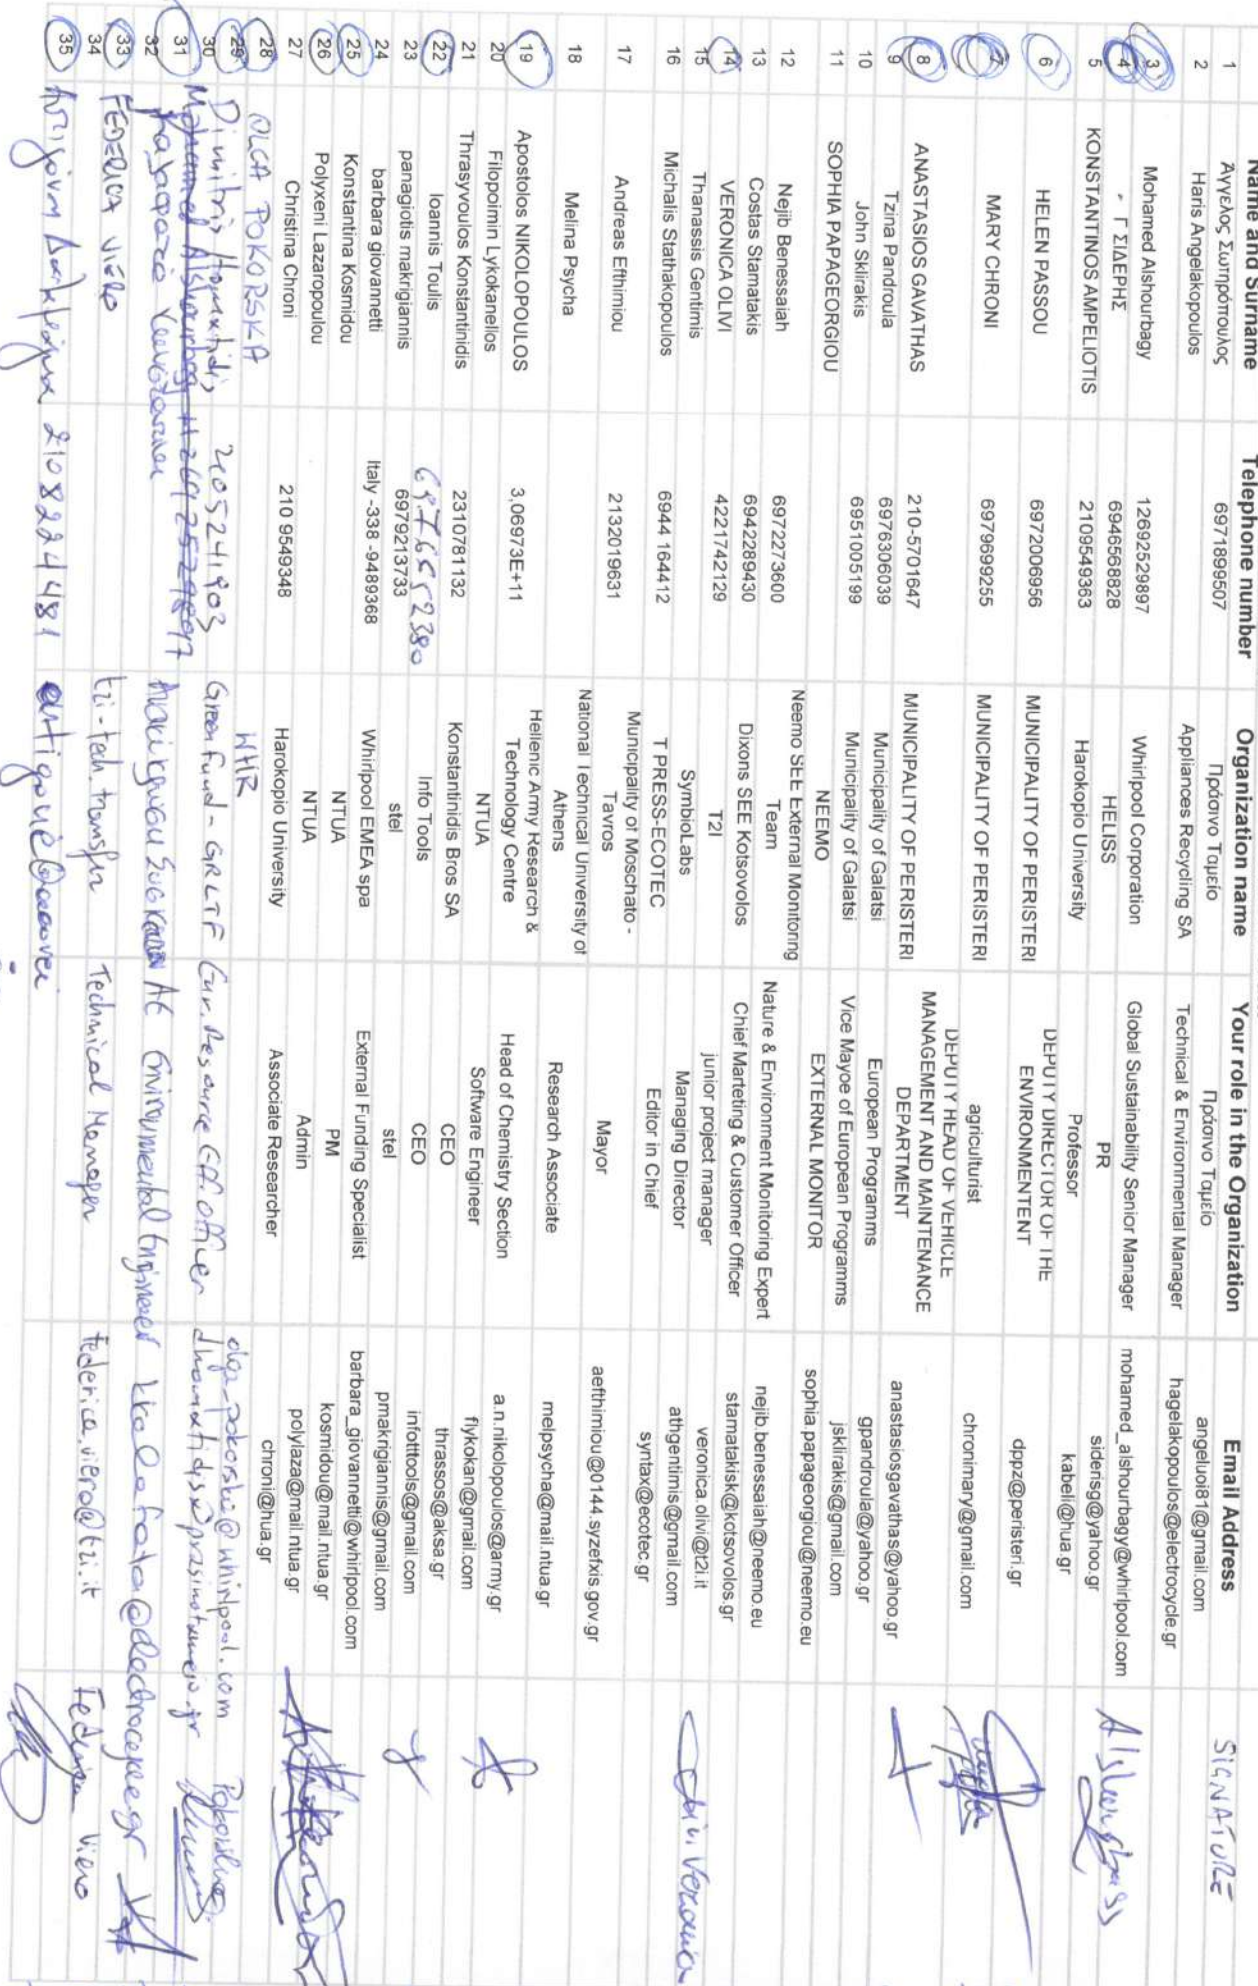 Name and Surname Telephone number Organization name Your role in the Organization Email Address SIGNATURE
1 Άγγελος Σωτηρόπουλος 6971899507 Πράσινο Ταμείο Πράσινο Ταμείο angeluoi81@gmail.com
2 Haris Angelakopoulos Appliances Recycling SA Technical & Environmental Manager hagelakopoulos@electrocycle.gr
3 Mohamed Alshourbagy 12692529897 Whirlpool Corporation Global Sustainability Senior Manager mohamed_alshourbagy@whirlpool.com
4 Γ ΣΙΔΕΡΗΣ 6946568828 HELISS PR siderisg@yahoo.gr
5 KONSTANTINOS AMPELIOTIS 2109549363 Harokopio University Professor kabeli@hua.gr
6 HELEN PASSOU 6972006956 MUNICIPALITY OF PERISTERI DEPUTY DIRECTOR OF THE ENVIRONMENTENT dppz@peristeri.gr
7 MARY CHRONI 6979699255 MUNICIPALITY OF PERISTERI agriculturist chronimary@gmail.com
8 ANASTASIOS GAVATHAS 210-5701647 MUNICIPALITY OF PERISTERI DEPUTY HEAD OF VEHICLE MANAGEMENT AND MAINTENANCE DEPARTMENT anastasiosgavathas@yahoo.gr
9 Tzina Pandroula 6976306039 Municipality of Galatsi European Programms gpandroula@yahoo.gr
10 John Sklirakis 6951005199 Municipality of Galatsi Vice Mayoe of European Programms jsklirakis@gmail.com
11 SOPHIA PAPAGEORGIOU NEEMO EXTERNAL MONITOR sophia.papageorgiou@neemo.eu
12 Nejib Benessaiah 6972273600 Neemo SEE External Monitoring Team Nature & Environment Monitoring Expert nejib.benessaiah@neemo.eu
13 Costas Stamatakis 6942289430 Dixons SEE Kotsovolos Chief Marteting & Customer Officer stamatakisk@kotsovolos.gr
14 VERONICA OLIVI 4221742129 T2I junior project manager veronica.olivi@t2i.it
15 Thanassis Gentimis SymbioLabs Managing Director athgentimis@gmail.com
16 Michalis Stathakopoulos 6944 164412 T PRESS-ECOTEC Editor in Chief syntax@ecotec.gr
17 Andreas Efthimiou 2132019631 Municipality of Moschato - Tavros Mayor aefthimiou@0144.syzefxis.gov.gr
18 Melina Psycha National Technical University of Athens Research Associate melpsycha@mail.ntua.gr
19 Apostolos NIKOLOPOULOS 3,06973E+11 Hellenic Army Research & Technology Centre Head of Chemistry Section a.n.nikolopoulos@army.gr
20 Filopoimin Lykokanellos NTUA Software Engineer flykokan@gmail.com
21 Thrasyvoulos Konstantinidis 2310781132 Konstantinidis Bros SA CEO thrassos@aksa.gr
22 Ioannis Toulis 69776552380 Info Tools CEO infotttools@gmail.com
23 panagiotis makrigiannis 6979213733 stel stel pmakrigiannis@gmail.com
24 barbara giovannetti Italy -338 -9489368 Whirlpool EMEA spa External Funding Specialist barbara_giovannetti@whirlpool.com
25 Konstantina Kosmidou NTUA PM kosmidou@mail.ntua.gr
26 Polyxeni Lazaropoulou NTUA Admin polylaza@mail.ntua.gr
27 Christina Chroni 210 9549348 Harokopio University Associate Researcher chroni@hua.gr
28 OLGA POKORSKA WHR olga_pokorska@whirlpool.com
29
30 Dimitris Homatidis 2105241903 Green Fund - GRLTF Eur. Resource Eff. officer dhomatidis@prasinotameio.gr
31 Mohamed Alshourbagy +12692529897
32 Environmental Engineer
33 FEDERICA VIERO t2i-tech. transfer Technical Manager federica.viero@t2i.it Federica Viero
34
35 2108224481